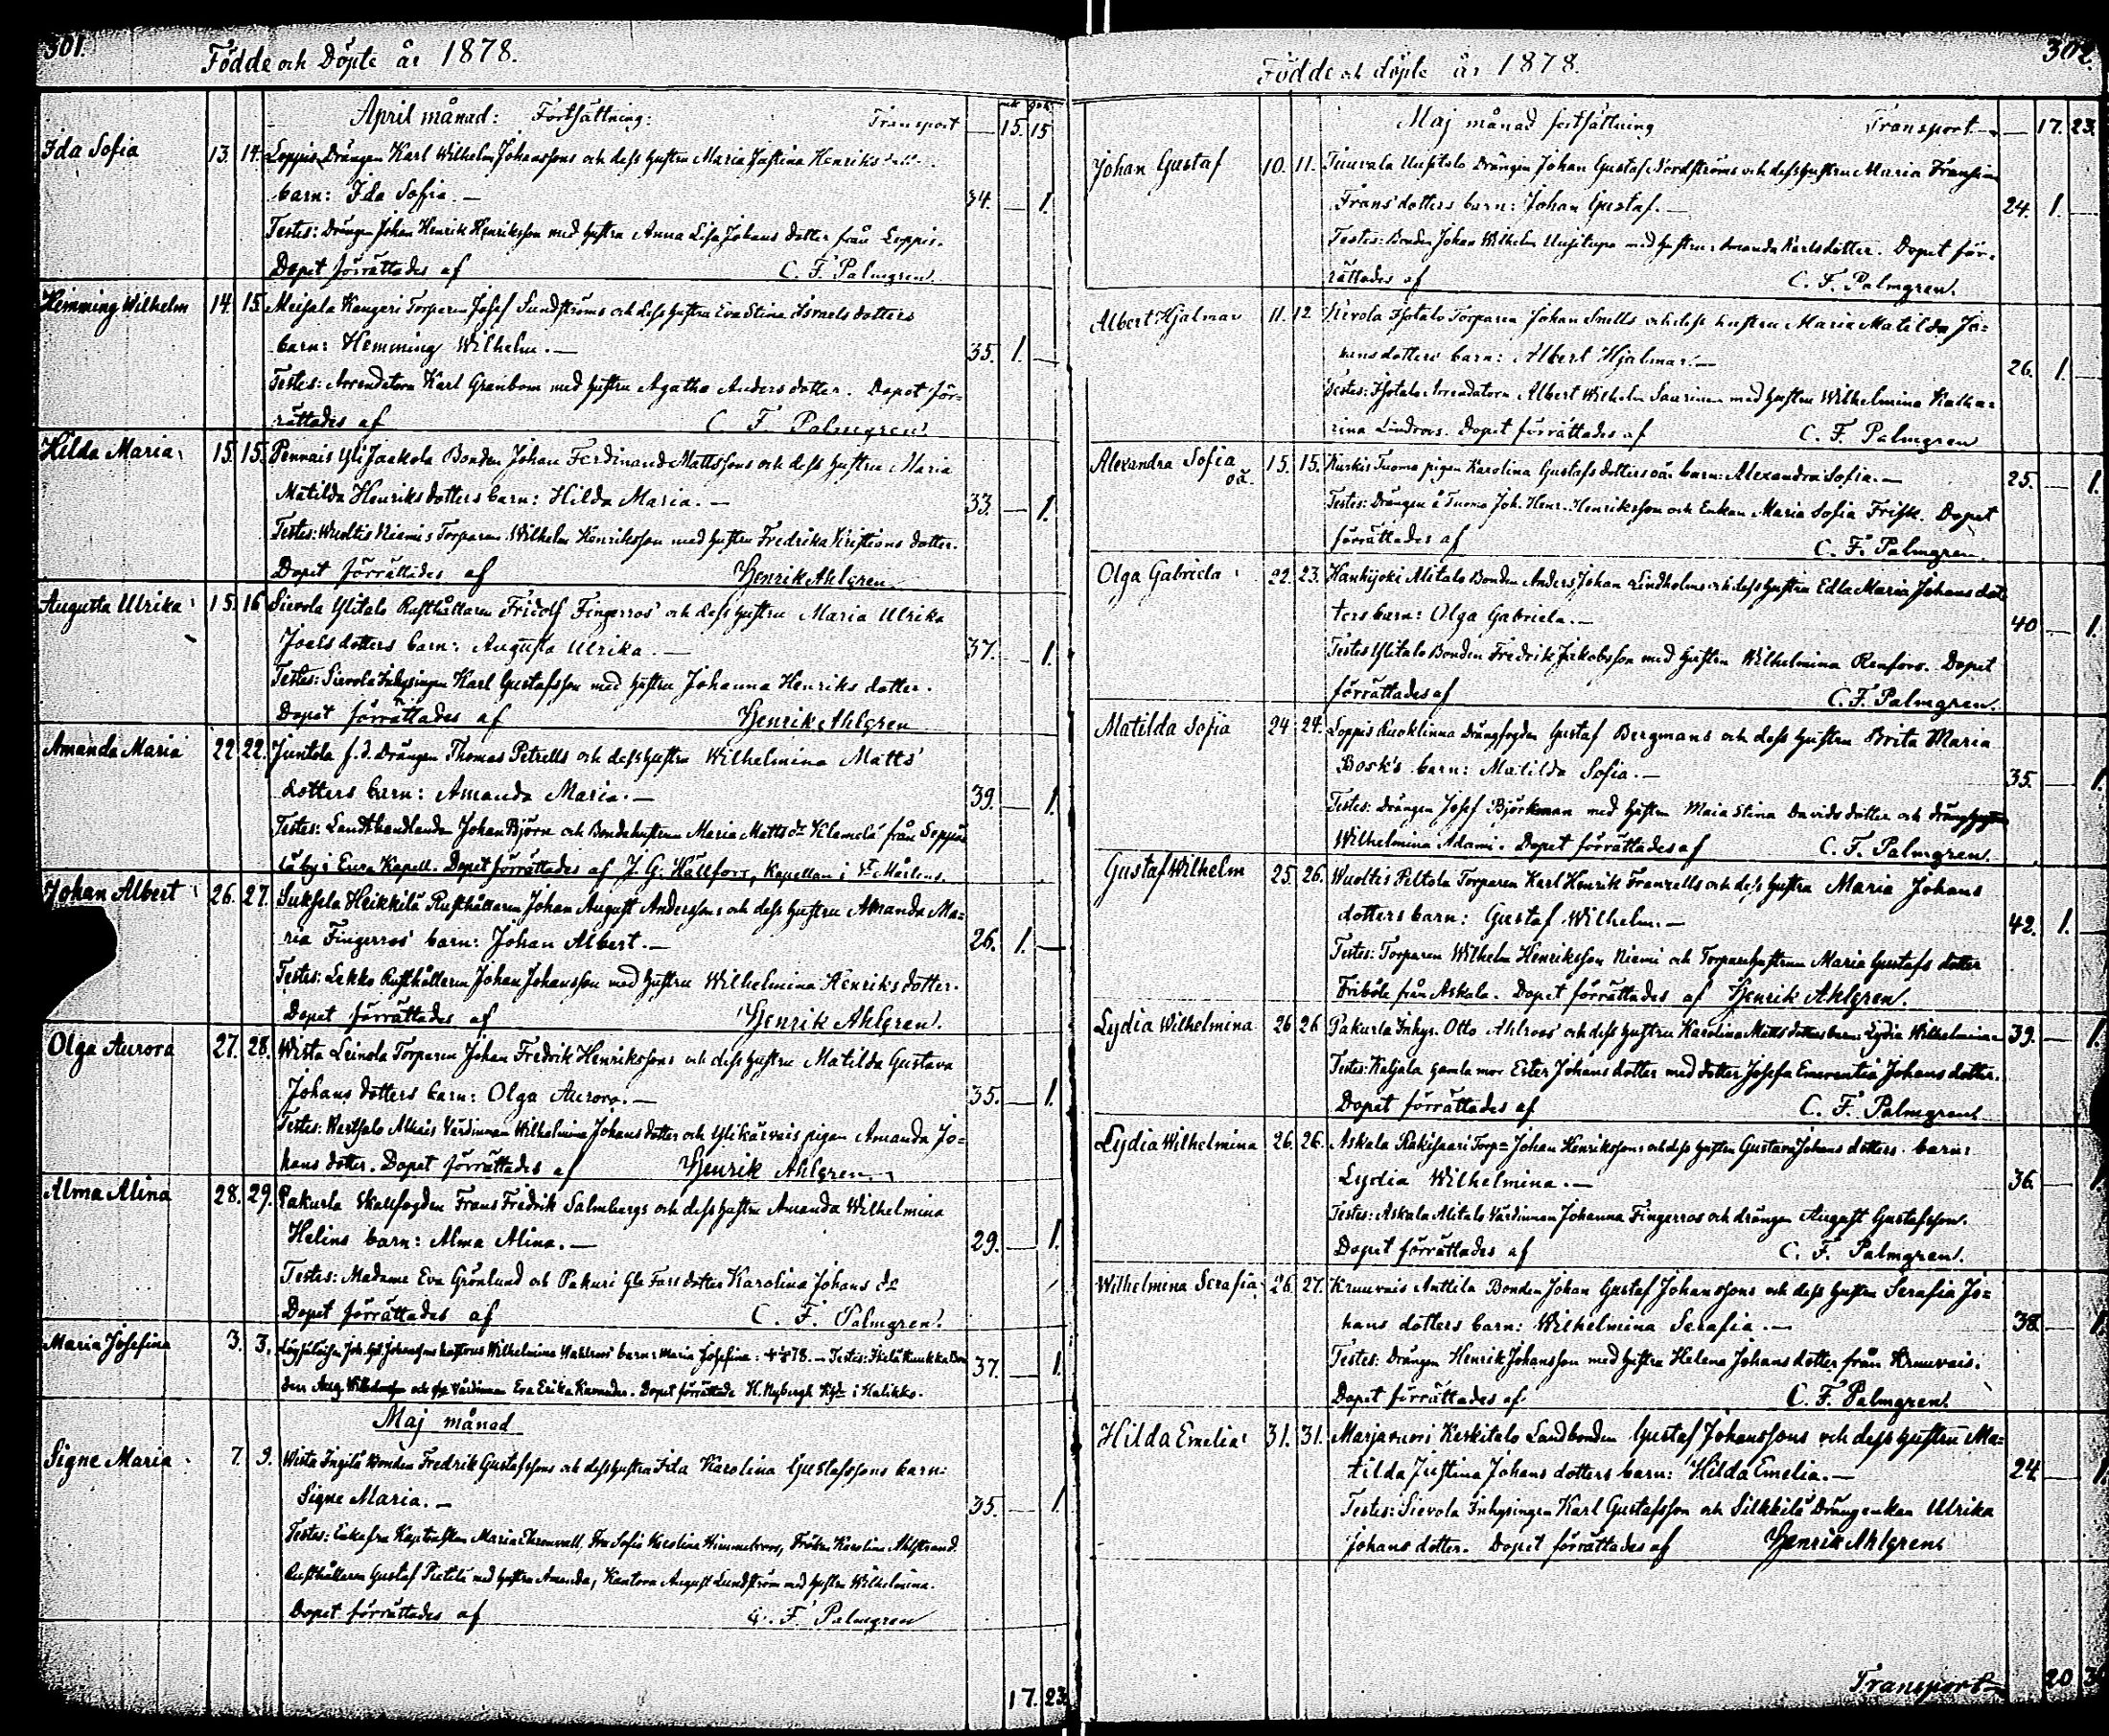 301.
Födde och Döpte år 1878.
mk gok
April månad: Fortsättning: Transport — 15. 15
Ida Sofia 13. 14. Loppis Drängen Karl Wilhelm Johanssons och dess hustru Maria Justina Henriks
barn: Ida Sofia. — 34. — 1.
Testes: Drängen Johan Henrik Henriksson med hustru Anna Lisa Johans dotter från Loppis.
Dopet förrättades af C. F. Palmgren.
Hemming Wilhelm 14. 15. Meisala Kangeri Torparen Josef Sundströms och dess hustru Eva Stina Israels dotters
barn: Hemming Wilhelm. — 35. 1. —
Testes: Arrendatorn Karl Granbom med hustru Agatha Anders dotter. Dopet för=
rättades af C. F. Palmgren.
Hilda Maria 15. 15. Pennais Yli Jaakola Bonden Johan Ferdinand Mattssons och dess hustru Maria
Matilda Henriks dotters barn: Hilda Maria. — 33. — 1.
Testes: Wuoltis Niemis Torparen Wilhelm Henriksson med hustru Fredrika Kristians dotter.
Dopet förrättades af Henrik Ahlgren
Augusta Ulrika 15. 16. Sievola Ylitalo Rusthållaren Fridolf Fingerroos' och dess hustru Maria Ulrika
Joels dotters barn: Augusta Ulrika. — 37. — 1.
Testes: Sievola Inhysingen Karl Gustafsson med hustru Johanna Henriks dotter.
Dopet förrättades af Henrik Ahlgren
Amanda Maria 22. 22. Juntola f. d. Drängen Thomas Petrells och dess hustru Wilhelmina Matts'
dotters barn: Amanda Maria. — 39. — 1.
Testes: Landthandlanden Johan Björn och Bondehustrun Maria Matts dr Klemelä från
by i Eura Kapell. Dopet förrättades af J. G. Hällfors, Kapellan i St Mårtens.
Johan Albert 26. 27. Suksela Heikkilä Rusthållaren Johan August Anderssons och dess hustru Amanda Ma=
ria Fingerroos' barn: Johan Albert. — 26. 1. —
Testes: Lekko Rusthållaren Johan Johansson med hustru Wilhelmina Henriks dotter.
Dopet förrättades af Henrik Ahlgren.
Olga Aurora 27. 28. Wista Leinola Torparen Johan Fredrik Henrikssons och dess hustru Matilda Gustava
Johans dotters barn: Olga Aurora. — 35. — 1.
Testes: Värdinnan Wilhelmina Johans dotter och pigan Amanda Jo=
hans dotter. Dopet förrättades af Henrik Ahlgren.
Alma Alina 28. 29. Pakurla Skallfogden Frans Fredrik Salmbergs och dess hustru Amanda Wilhelmina
Helins barn: Alma Alina. — 29. — 1.
Testes: Madame Eva Grönlund och Pakuri dotter Karolina Johans dr
Dopet förrättades af C. F. Palmgren.
Maria Josefina 3. 3. Wilhelmina barn: Maria Josefina. Testes:
Värdinnan Eva Erika Dopet förrättade H. Nybergh i Halikko. 37. — 1.
Maj månad
Signe Maria 7. 9. Wista Ingilä Bonden Fredrik Gustafssons och dess hustru Ida Karolina Gustafssons barn:
Signe Maria. — 35. — 1.
Testes: Enkefru Maria Ehrnrwall, Fru Sofia Karolina Himmelroos, Fröken Karolina Ahlstrand
Rusthållaren Gustaf Pietilä med hustru Amanda, Kantorn August Lundström med hustru Wilhelmina.
Dopet förrättades af C. F. Palmgren
17. 23.
302.
Födde och döpte år 1878.
Maj månad fortsättning Transport — 17. 23.
Johan Gustaf 10. 11. Tuuvala Uusitalo Drängen Johan Gustaf Nordströms och dess hustru Maria
Frans' dotters barn: Johan Gustaf. — 24. 1. —
Testes: Bonden Johan Wilhelm med hustru Amanda Karls dotter. Dopet för=
rättades af C. F. Palmgren.
Albert Hjalmar 11. 12. Sievola Isotalo Torparen Johan Snells och dess hustru Maria Matilda Jo=
hans dotters barn: Albert Hjalmar. — 26. 1. —
Testes: Isotalo Arrendatorn Albert Wilhelm Saurinen med hustru Wilhelmina Katha=
rina Lindroos. Dopet förrättades af C. F. Palmgren
Alexandra Sofia oä. 15. 15. Kurkis Tuomo pigan Karolina Gustafs dotters oä. barn: Alexandra Sofia. — 25. — 1.
Testes: Drängen å Tuomo Joh. Henr. Henriksson och Enkan Maria Sofia Frisk. Dopet
förrättades af C. F. Palmgren.
Olga Gabriela 22. 23. Hankijoki Alitalo Bonden Anders Johan Lindholms och dess hustru Edla Maria Johans dot
ters barn: Olga Gabriela. — 40 — 1.
Testes Ylitalo Bonden Fredrik Jakobsson med hustru Wilhelmina Renfors. Dopet
förrättades af C. F. Palmgren.
Matilda Sofia 24 24. Loppis Ruoklinna Drängfogden Gustaf Bergmans och dess hustru Brita Maria
Bosk's barn: Matilda Sofia. — 35. — 1.
Testes: Drängen Josef Björkman med hustru Maia Stina Davids dotter och
Wilhelmina Adami. Dopet förrättades af C. F. Palmgren.
Gustaf Wilhelm 25. 26. Wuoltis Peltola Torparen Karl Henrik Franzells och dess hustru Maria Johans
dotters barn: Gustaf Wilhelm. — 42. 1. —
Testes: Torparen Wilhelm Henriksson Niemi och Torparehustrun Maria Gustafs dotter
Friböle från Askala. Dopet förrättades af Henrik Ahlgren.
Lydia Wilhelmina 26 26 Pakurla Inhys. Otto Ahlroos' och dess hustru Karolina Matts dotters barn: Lydia Wilhelmina. 39. — 1.
Testes: Katjala gamla mor Ester Johans dotter med dotter Josefa Emerentia Johans dotter.
Dopet förrättades af C. F. Palmgren.
Lydia Wilhelmina 26. 26. Askala Rakisaari Torp= Johan Henrikssons och dess hustru Gustava Johans dotters barn:
Lydia Wilhelmina. — 36. — 1.
Testes: Askala Alitalo Värdinnan Johanna Fingerroos och drängen August Gustafsson.
Dopet förrättades af C. F. Palmgren.
Wilhelmina Serafia 26. 27. Kruuvais Anttila Bonden Johan Gustaf Johanssons och dess hustru Serafia Jo=
hans dotters barn: Wilhelmina Serafia. — 38. — 1.
Testes: Drängen Henrik Johansson med hustru Helena Johans dotter från Kruuvais.
Dopet förrättades af C. F. Palmgren.
Hilda Emelia 31. 31. Marjavuori Keskitalo Landbonden Gustaf Johanssons och dess hustru Ma=
tilda Justina Johans dotters barn: Hilda Emelia. — 24. — 1.
Testes: Sievola Inhysingen Karl Gustafsson och Silkkilä Drängenkan Ulrika
Johans dotter. Dopet förrättades af Henrik Ahlgren.
Transport — 20